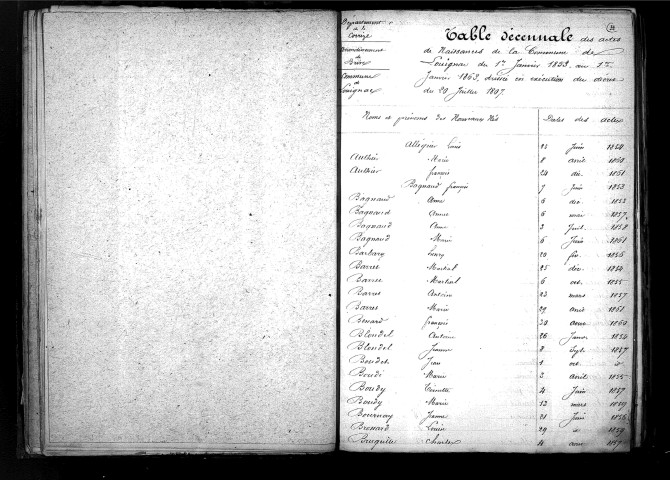 Département
de la
Corrèze
Arrondissement
de
Brive
Commune
de
Louignac
Table décennale des actes
de Naissances de la Commune de
Louignac du 1er Janvier 1853 au 1er
Janvier 1863, dressée en exécution du décret
du 20 Juillet 1807.
Noms et prénoms des Nouveaux Nés Dates des actes
Allégrier Louis 25 Juin 1854
Authier Marie 8 avril 1860
Authier françois 24 déc. 1861
Bagnaud françois 7 Juin 1853
Bagnaud Anne 6 déc. 1853
Bagnaud Anne 6 mai 1857
Bagnaud Anne 3 Juil. 1858
Bagnaud Marie 6 Juin 1861
Barbary henry 20 fév. 1856
Barret Martial 25 déc. 1854
Barret Martial 6 oct. 1855
Barret Antoine 23 mars 1857
Barret Marie 29 avril 1861
françois 30 1860
Blondel Antoine 26 Janv. 1854
Blondel Jeanne 8 Sept. 1857
Boudet Jean 1 oct.
Boudi Marie 3 avril 1855
Boudy 4 Juin 1857
Boudy Marie 12 mars 1859
Bournay Jeanne 21 Juin 1856
Brossard Louise 29 1859
Charles 4